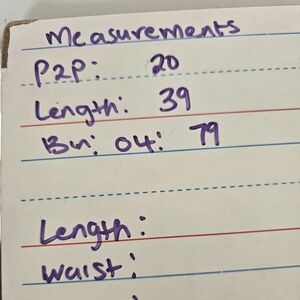 Measurements
P2P: 20
Length: 39
Bin: 04: 79
Length:
Waist: